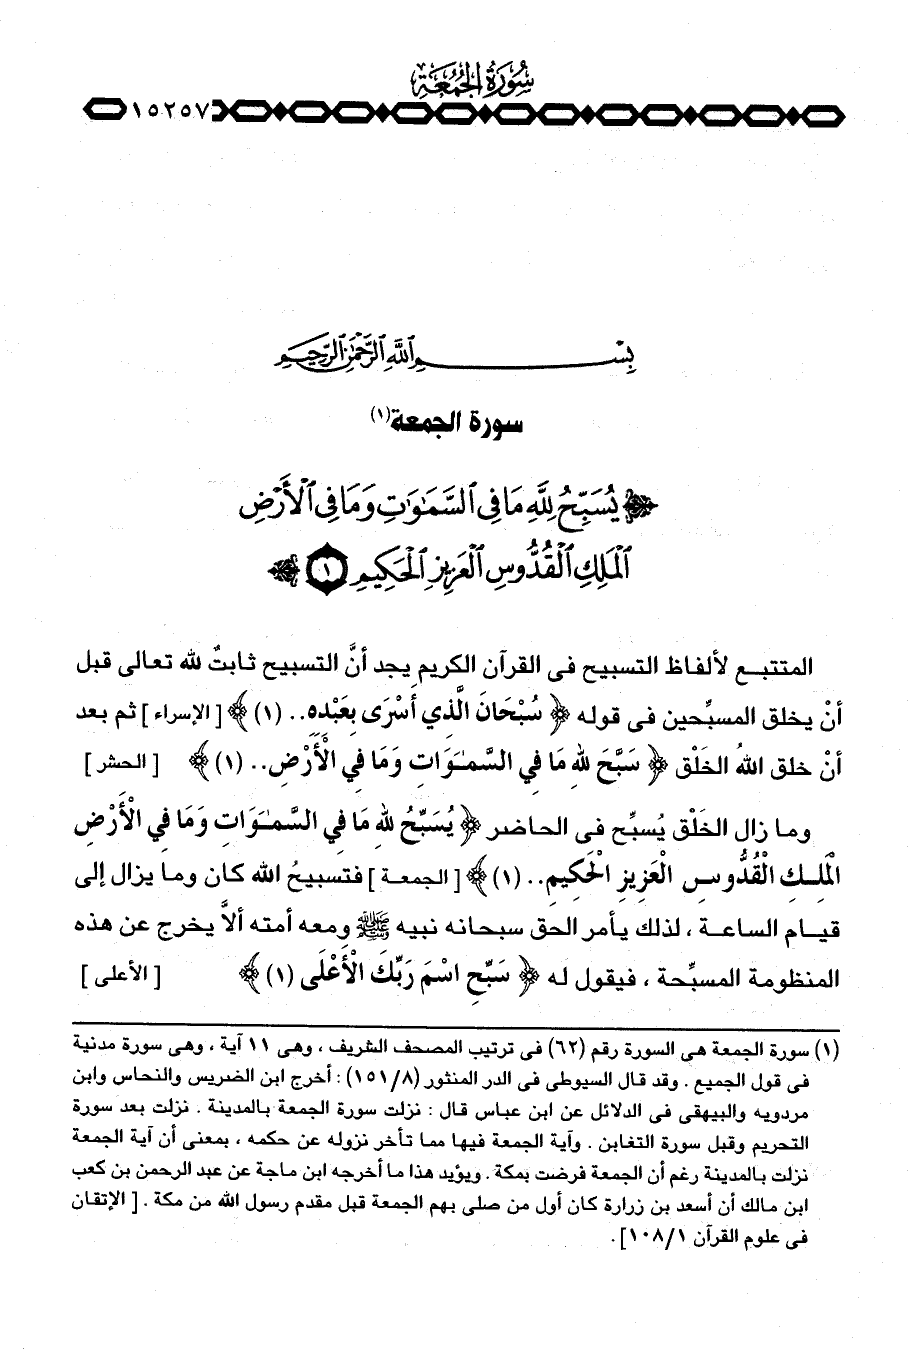 سُورَةُ الجُمُعَةِ
١٥٢٥٧
بِسْمِ اللَّهِ الرَّحْمَٰنِ الرَّحِيمِ
سورة الجمعة(١)
﴿ يُسَبِّحُ لِلَّهِ مَا فِي السَّمَٰوَٰتِ وَمَا فِي الْأَرْضِ
الْمَلِكِ الْقُدُّوسِ الْعَزِيزِ الْحَكِيمِ ١ ﴾
المتتبع لألفاظ التسبيح فى القرآن الكريم يجد أنَّ التسبيح ثابتٌ لله تعالى قبل
أنْ يخلق المسبِّحين فى قوله ﴿ سُبْحَانَ الَّذِي أَسْرَى بِعَبْدِهِ.. (١) ﴾ [ الإسراء ] ثم بعد
أنْ خلق اللهُ الخَلْق ﴿ سَبَّحَ لِلَّهِ مَا فِي السَّمَـٰوَاتِ وَمَا فِي الْأَرْضِ.. (١) ﴾ [ الحشر ]
وما زال الخَلْق يُسبِّح فى الحاضر ﴿ يُسَبِّحُ لِلَّهِ مَا فِي السَّمَـٰوَاتِ وَمَا فِي الْأَرْضِ
الْمَلِكِ الْقُدُّوسِ الْعَزِيزِ الْحَكِيمِ.. (١) ﴾ [ الجمعة ] فتسبيحُ الله كان وما يزال إلى
قيام الساعة ، لذلك يأمر الحق سبحانه نبيه ﷺ ومعه أمته ألاَّ يخرج عن هذه
المنظومة المسبِّحة ، فيقول له ﴿ سَبِّحِ اسْمَ رَبِّكَ الْأَعْلَى (١) ﴾ [ الأعلى ]
(١) سورة الجمعة هى السورة رقم (٦٢) فى ترتيب المصحف الشريف ، وهى ١١ آية ، وهى سورة مدنية
فى قول الجميع . وقد قال السيوطى فى الدر المنثور (١٥١/٨) : أخرج ابن الضريس والنحاس وابن
مردويه والبيهقى فى الدلائل عن ابن عباس قال : نزلت سورة الجمعة بالمدينة . نزلت بعد سورة
التحريم وقبل سورة التغابن . وآية الجمعة فيها مما تأخر نزوله عن حكمه ، بمعنى أن آية الجمعة
نزلت بالمدينة رغم أن الجمعة فرضت بمكة . ويؤيد هذا ما أخرجه ابن ماجة عن عبد الرحمن بن كعب
ابن مالك أن أسعد بن زرارة كان أول من صلى بهم الجمعة قبل مقدم رسول الله من مكة . [ الإتقان
فى علوم القرآن ١٠٨/١] .